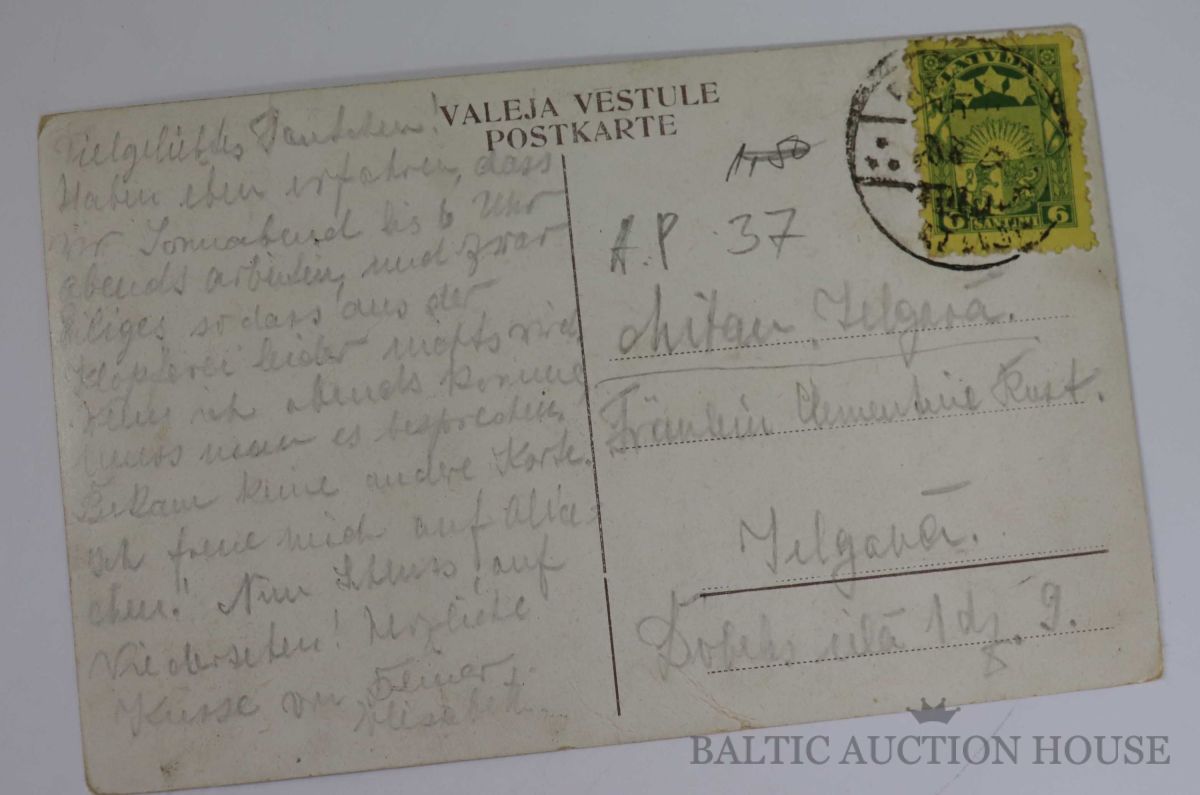 VALEJA VESTULE
POSTKARTE
Vielgeliebtes Tantchen!
Haben eben erfahren, dass
wir Sonnabend bis 6 Uhr
abends arbeiten, und zwar
eiliges sodass aus der
Klopferei leider nichts wird
Wenn ich abends komme,
muss man es besprechen.
Bekam keine andere Karte.
Ich freue mich auf
chen! Nun Schluss, auf
Wiedersehen! Herzliche
Küsse von Deiner
Elisabeth.
1,50
A.P 37
Mitau, Jelgavā.
Fräulein Clementine
Jelgavā.
Dobeles ielā 1 dz. 9.
LATVIJA
6 SANTIMI 6
BALTIC AUCTION HOUSE